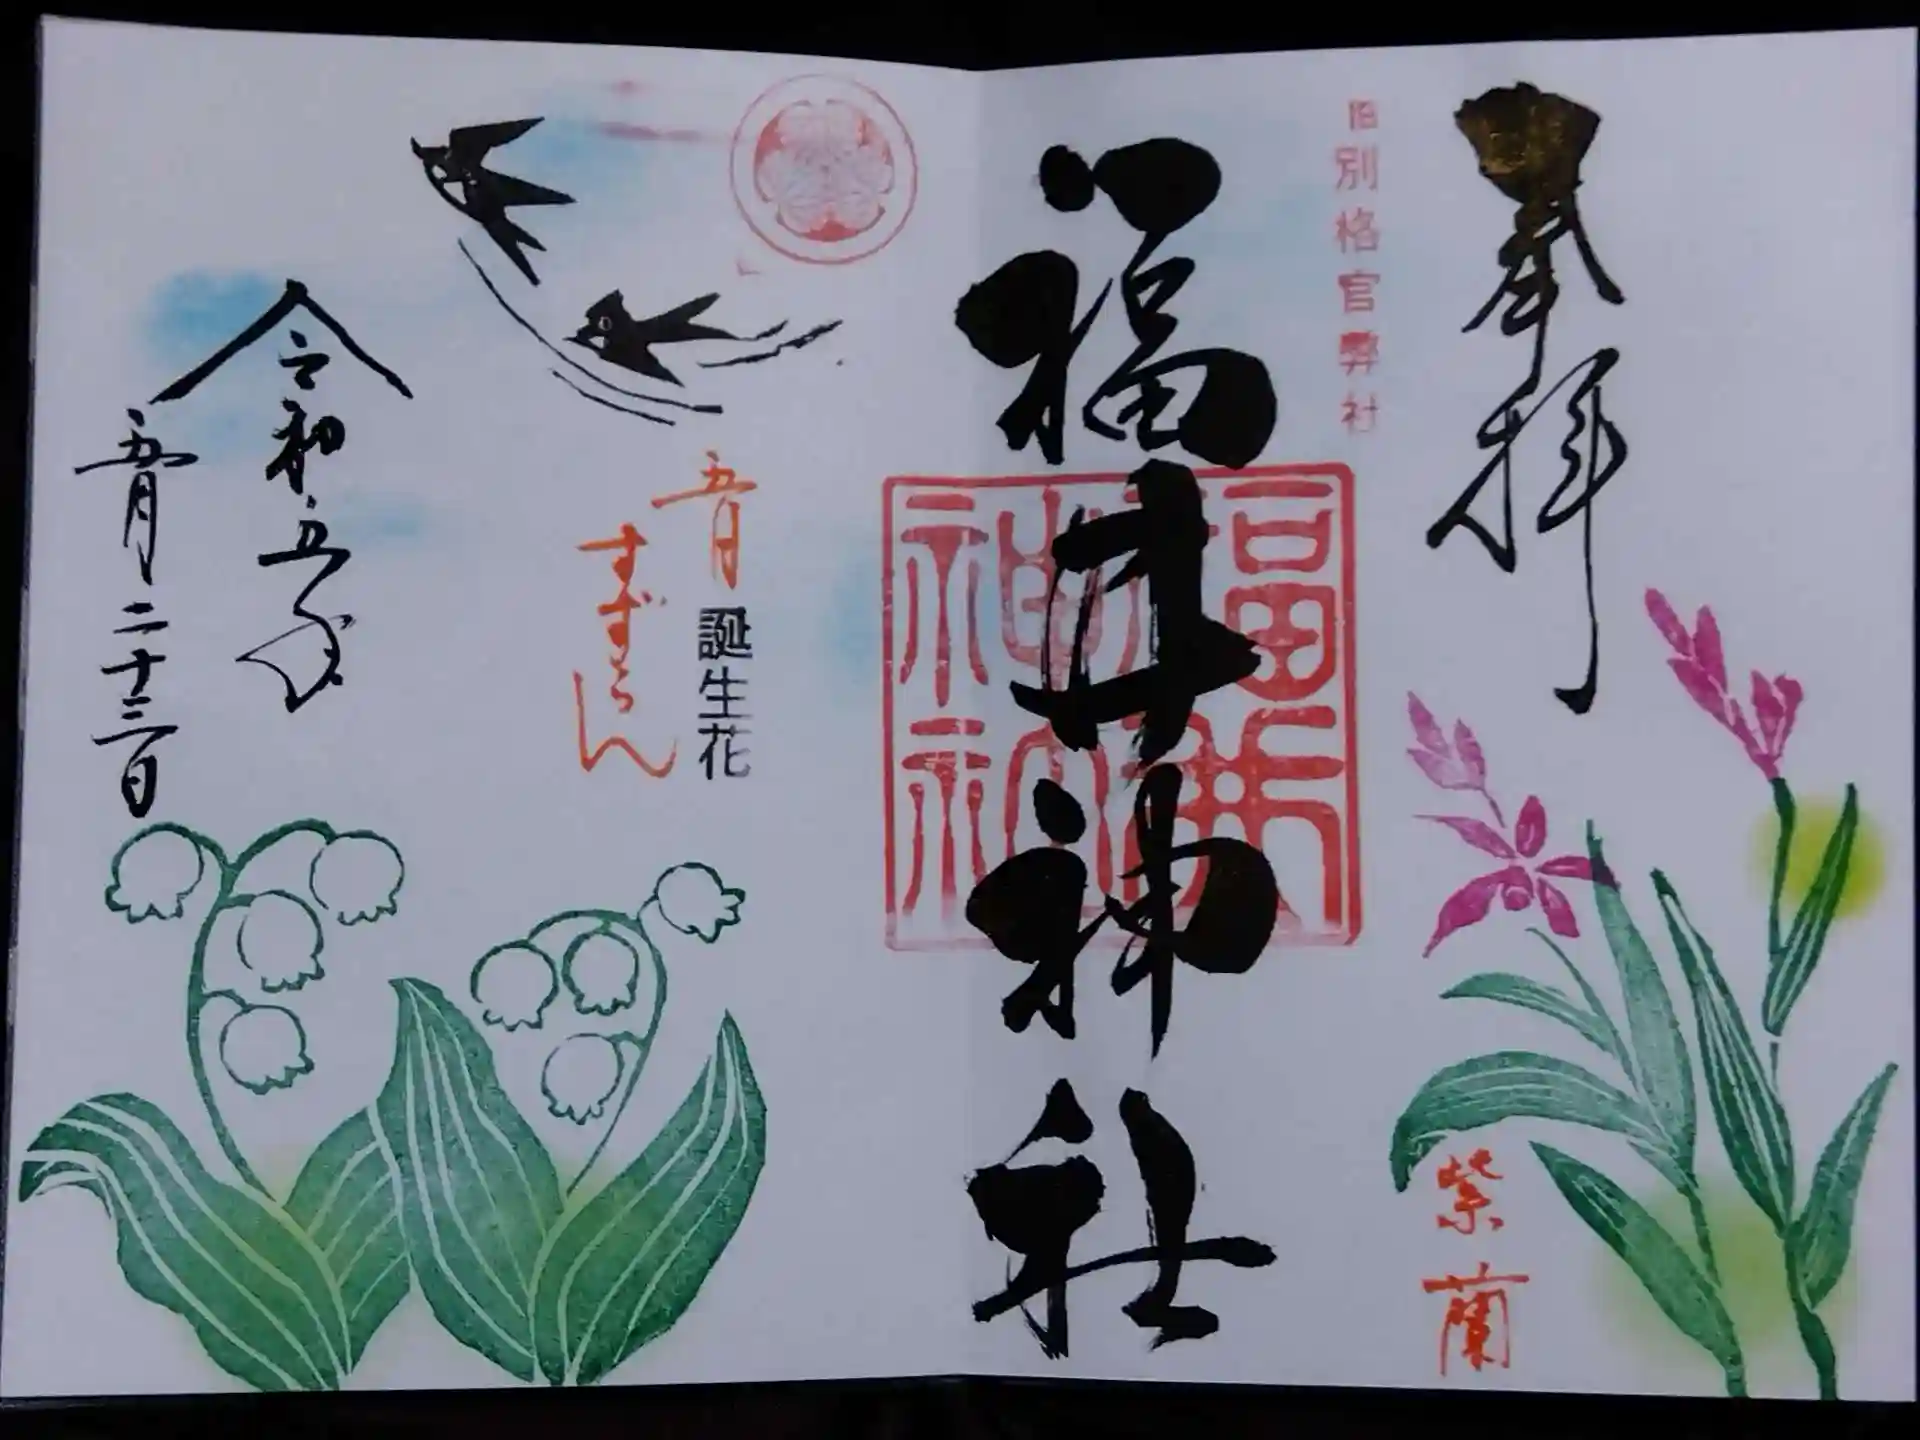 奉拝
旧別格官弊社
福井神社
福井神社
紫蘭
五月誕生花
すずらん
令和五年
五月二十三日